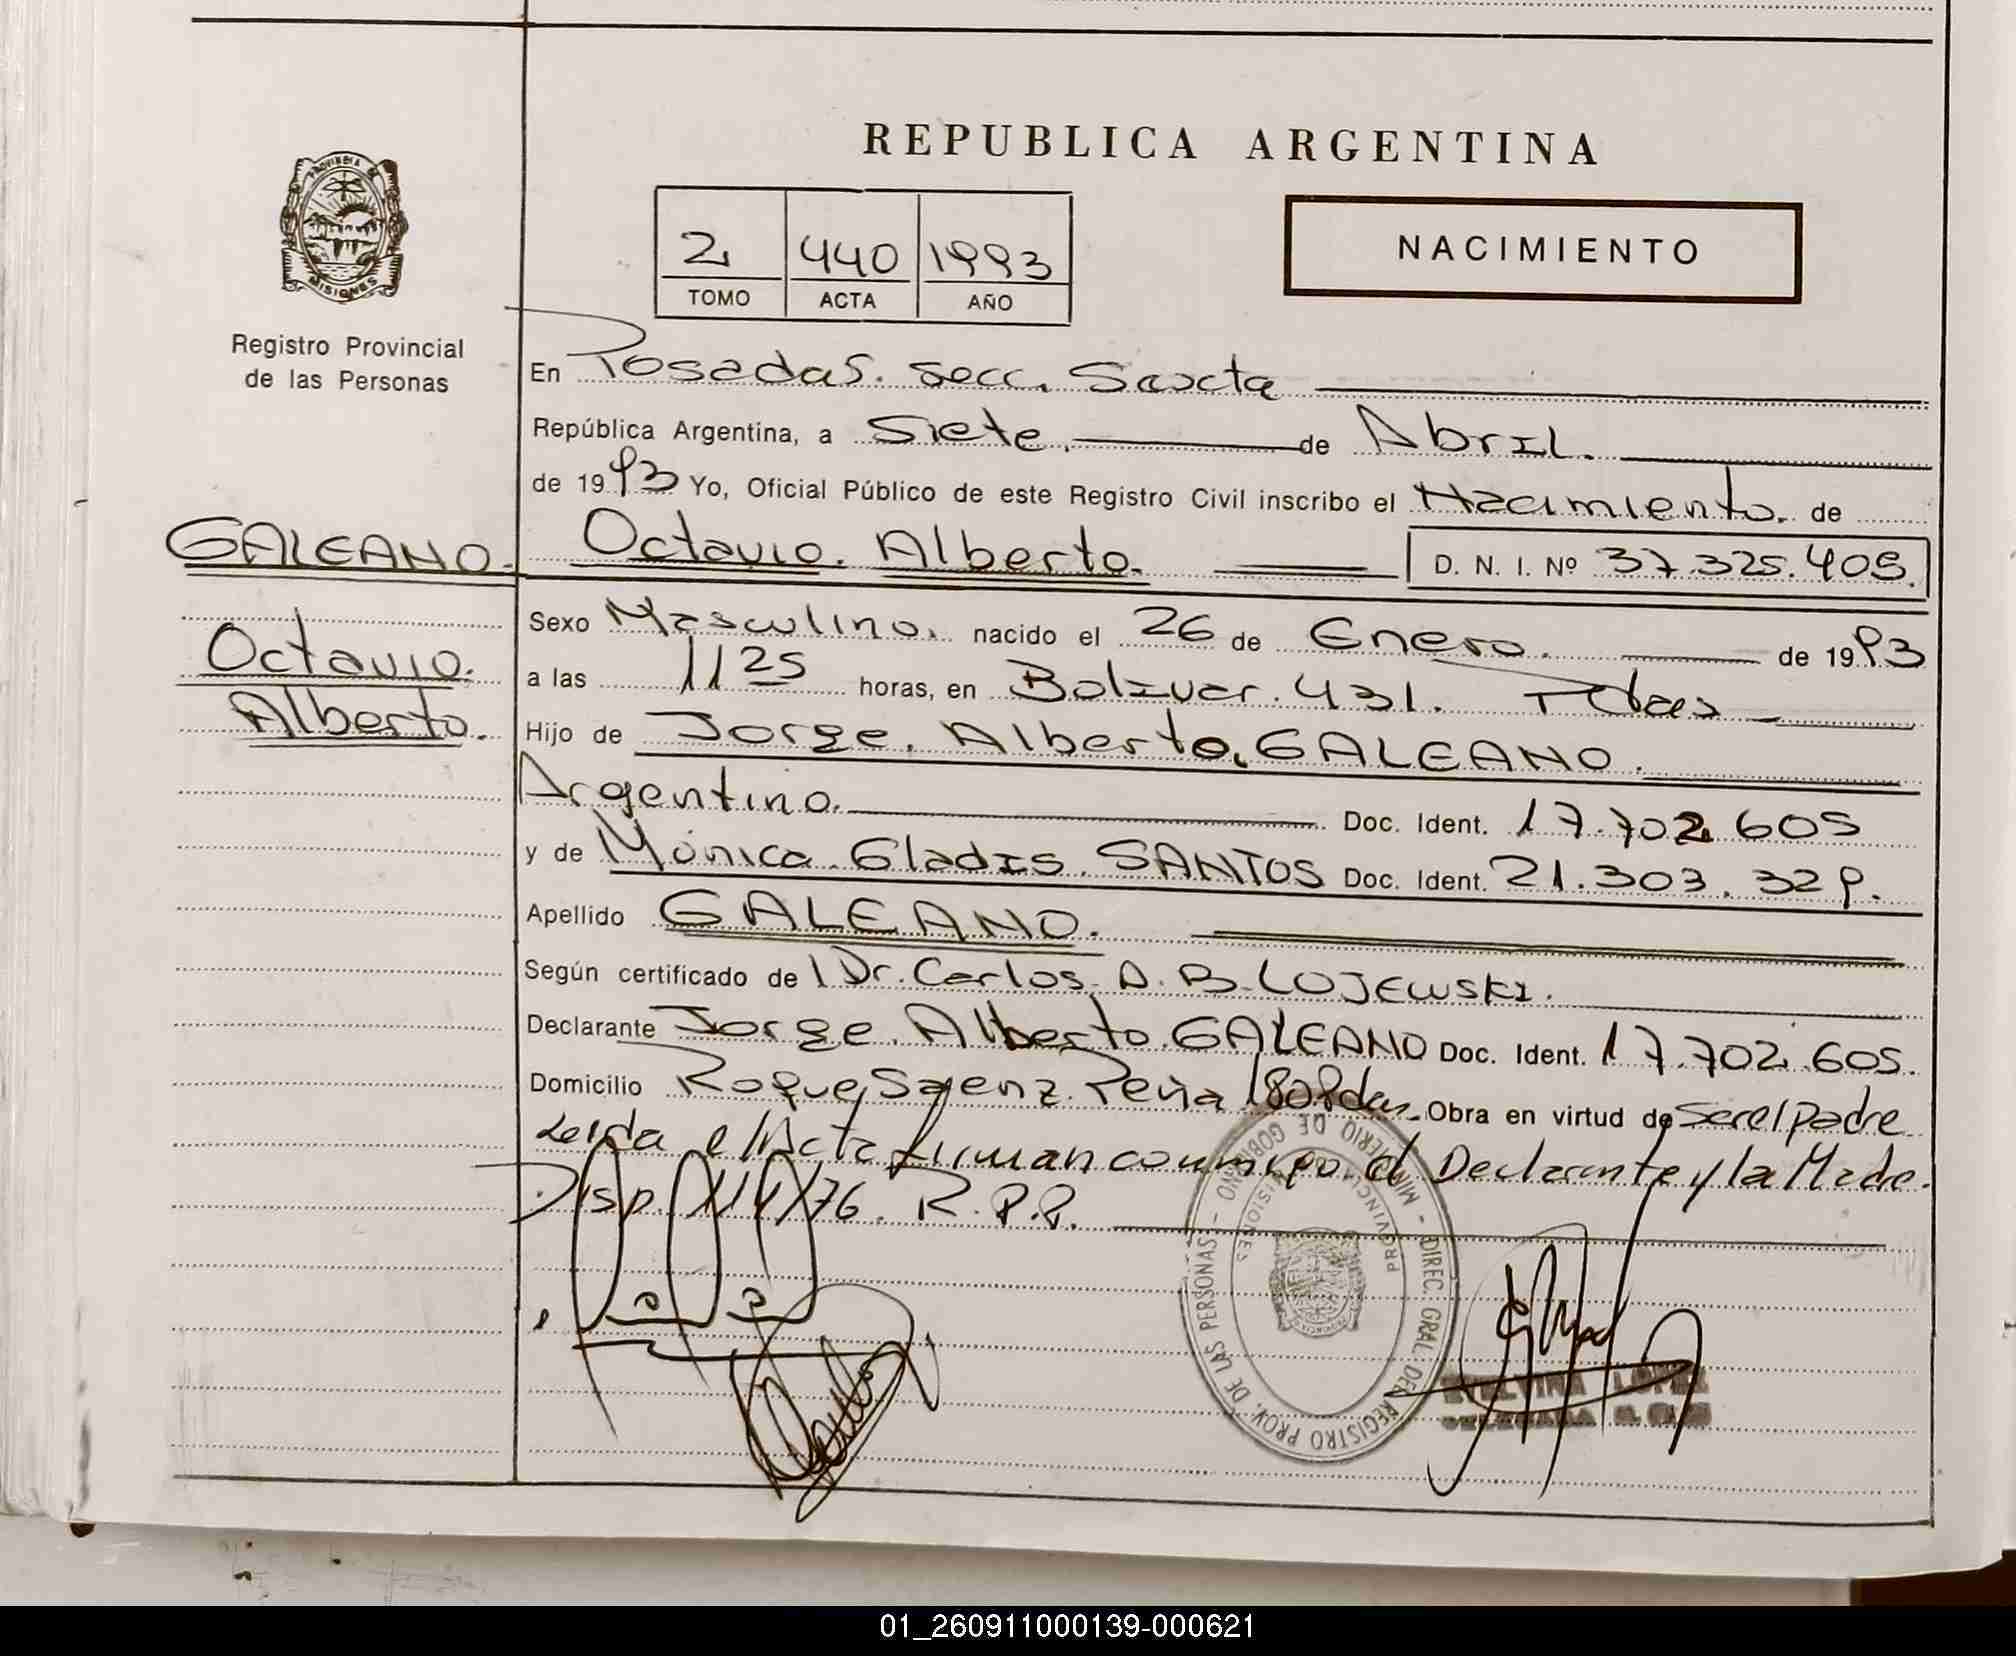 REPUBLICA ARGENTINA
PROVINCIA DE MISIONES
Registro Provincial
de las Personas
2 440 1993
TOMO ACTA AÑO
NACIMIENTO
En Posadas. Secc. Sexta
República Argentina, a Siete. de Abril.
de 1993 Yo, Oficial Público de este Registro Civil inscribo el Nacimiento. de
GALEANO. Octavio. Alberto. D. N. I. Nº 37.325.405.
Octavio.
Alberto.
Sexo Masculino. nacido el 26 de Enero. de 1993
a las 11 25 horas, en Bolivar. 431. Pdas
Hijo de Jorge. Alberto. GALEANO.
Argentino. Doc. Ident. 17.702.605
y de Mónica. Gladis. SANTOS Doc. Ident. 21.303.329.
Apellido GALEANO.
Según certificado de l Dr. Carlos. A. B. LOJEWSKI.
Declarante Jorge. Alberto. GALEANO Doc. Ident. 17.702.605.
Domicilio Roque Saenz. Peña 1808 Obra en virtud de ser el padre
Leida el Acta firman conmigo el Declarante y la Madre.
Disp. 114/76. R.P.P.
MINISTERIO DE GOBIERNO - DIREC. GRAL. DEL REGISTRO PROV. DE LAS PERSONAS -
PROVINCIA MISIONES
LOPEZ
01_260911000139-000621